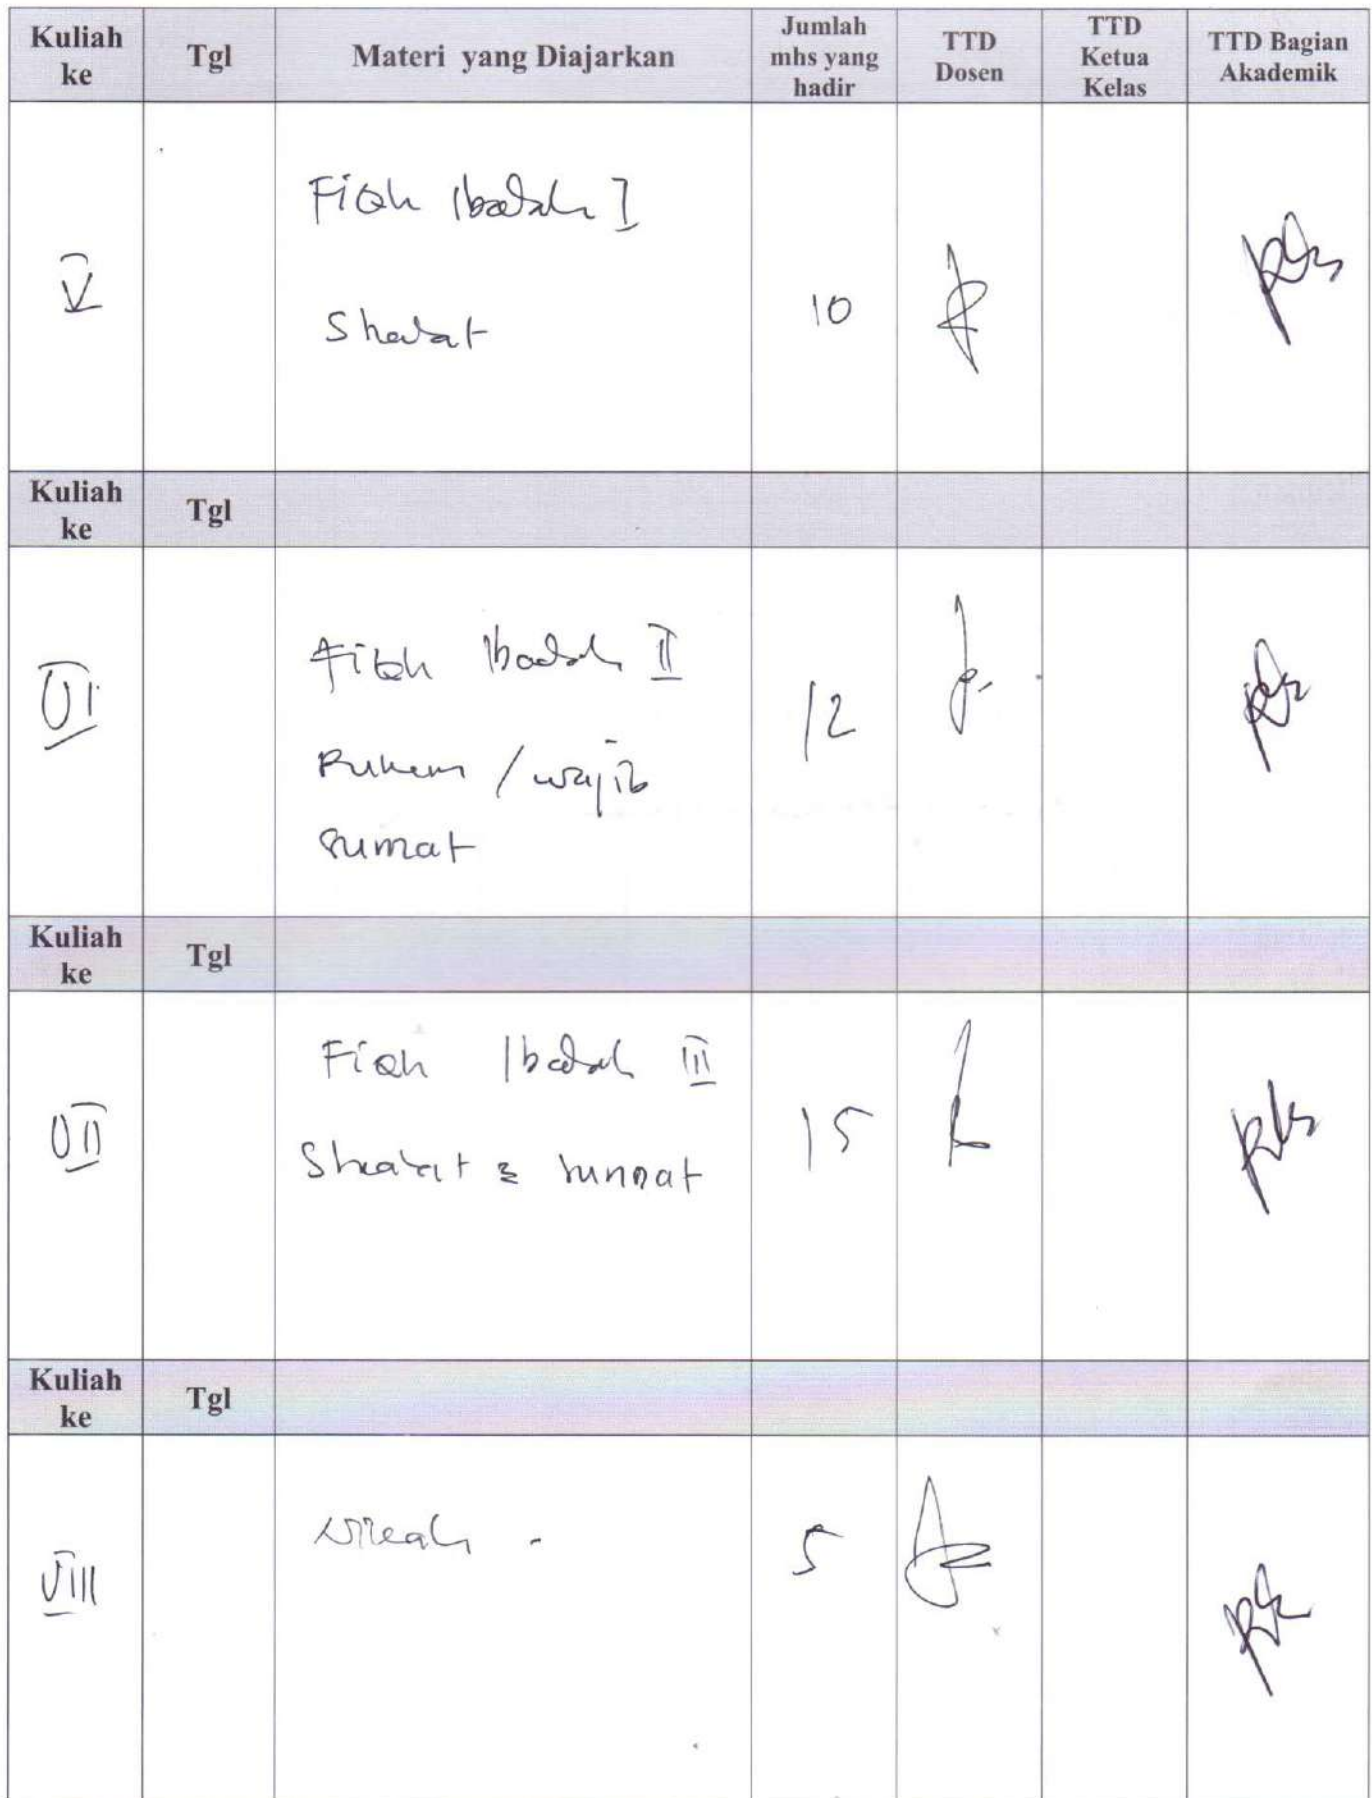 Kuliah ke Tgl Materi yang Diajarkan Jumlah mhs yang hadir TTD Dosen TTD Ketua Kelas TTD Bagian Akademik
Fiqh Ibadah I
V
Shalat
10
Kuliah ke Tgl
Fiqh Ibadah II
VI
12
Rukun / wajib
sunnat
Kuliah ke Tgl
Fiqh Ibadah III
VII
15
Shalat sunnat
Kuliah ke Tgl
VIII
5